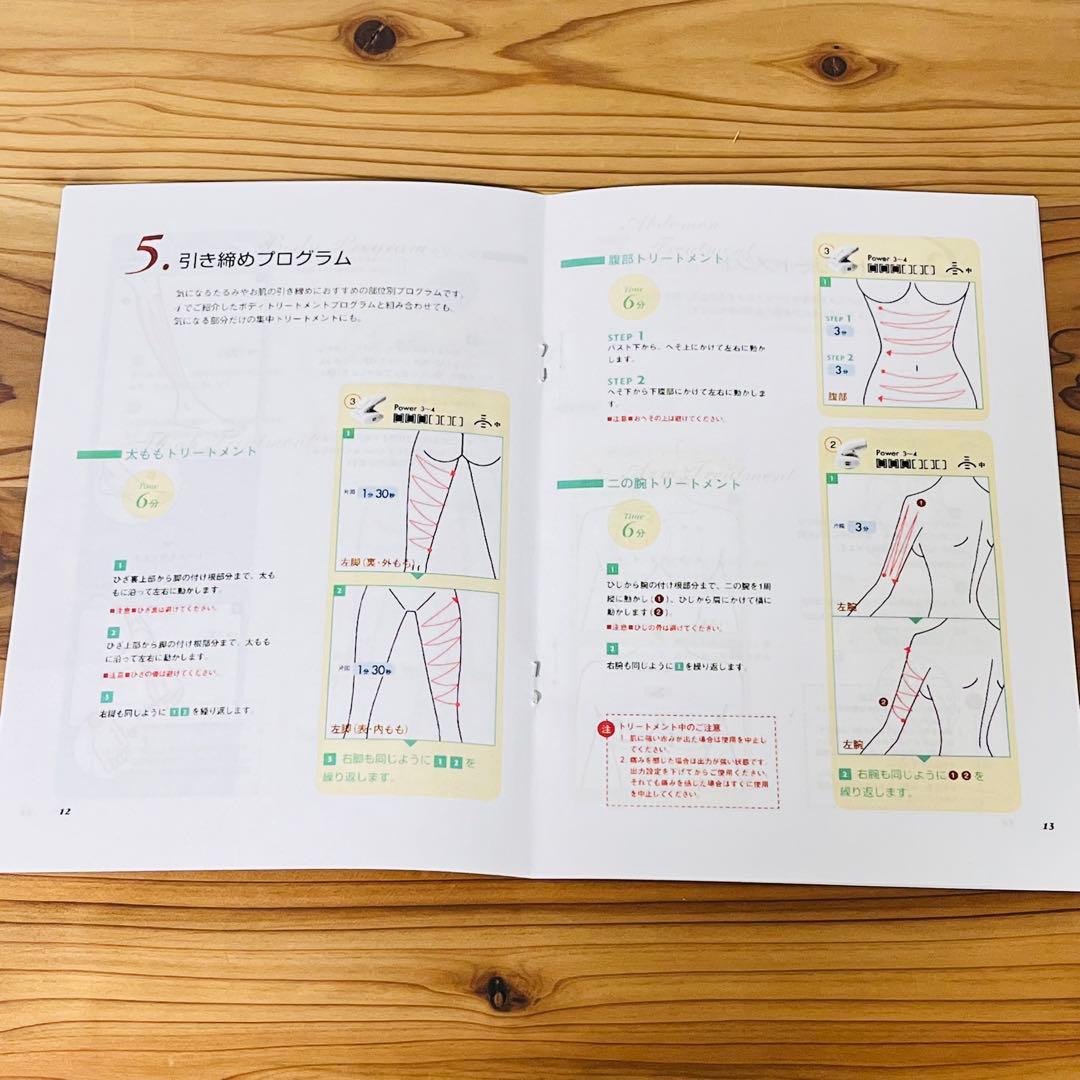 5. 引き締めプログラム
気になるたるみやお肌の引き締めにおすすめの部位別プログラムです。
すでご紹介したボディトリートメントプログラムと組み合わせても、
気になる部分だけの集中トリートメントにも。
太ももトリートメント
Time
6分
1
ひざ裏上部から脚の付け根部分まで、太も
もに沿って左右に動かします。
■注意■ひざ裏は避けてください。
2
ひざ上部から脚の付け根部分まで、太もも
に沿って左右に動かします。
■注意■ひざの骨は避けてください。
3
右脚も同じように 1 2 を繰り返します。
3
Power 3〜4
中
1
片面 1分30秒
左脚(裏・外もも)
2
片面 1分30秒
左脚(表・内もも)
3 右脚も同じように 1 2 を
繰り返します。
12
腹部トリートメント
Time
6分
STEP 1
バスト下から、へそ上にかけて左右に動か
します。
STEP 2
へそ下から下腹部にかけて左右に動かしま
す。
■注意■おへその上は避けてください。
3
Power 3〜4
中
1
STEP 1
3分
STEP 2
3分
腹部
二の腕トリートメント
Time
6分
1
ひじから腕の付け根部分まで、二の腕を1周
縦に動かし(❶)、ひじから肩にかけて横に
動かします(❷)。
■注意■ひじの骨は避けてください。
2
右腕も同じように 1 を繰り返します。
2
Power 3〜4
中
1
❶
片腕 3分
左腕
❷
左腕
2 右腕も同じように❶❷を
繰り返します。
注 トリートメント中のご注意
1. 肌に強い赤みが出た場合は使用を中止し
てください。
2. 痛みを感じた場合は出力が強い状態です。
出力設定を下げてからご使用ください。
それでも痛みを感じた場合はすぐに使用
を中止してください。
13